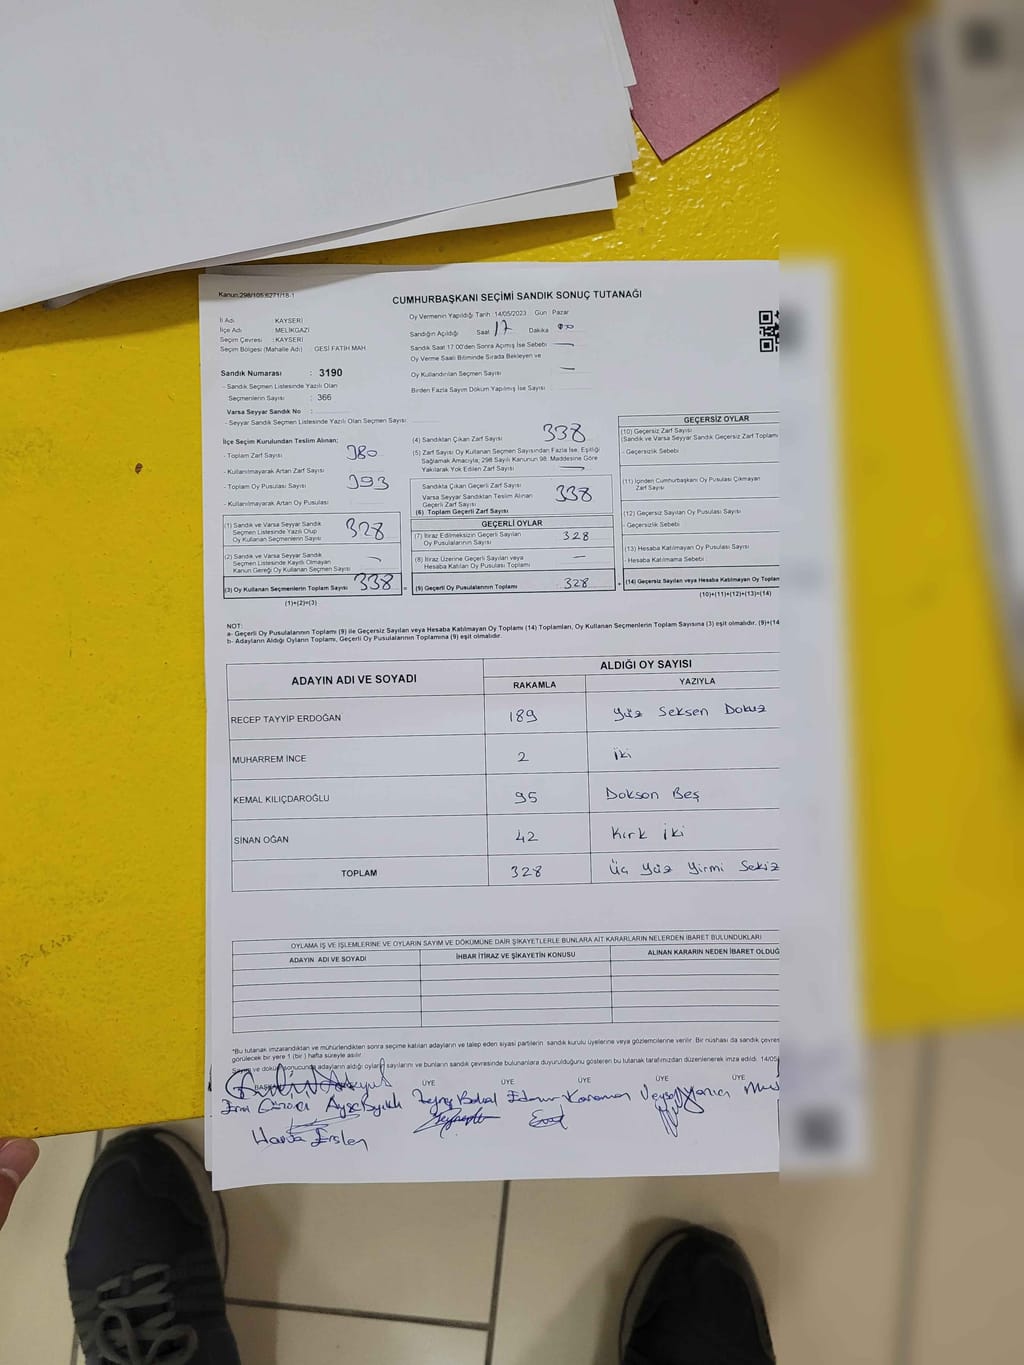 Kanun:298/105:6271/18-1
CUMHURBAŞKANI SEÇİMİ SANDIK SONUÇ TUTANAĞI
İl Adı KAYSERİ
İlçe Adı : MELİKGAZİ
Seçim Çevresi : KAYSERİ
Seçim Bölgesi (Mahalle Adı) : GESİ FATİH MAH.
Oy Vermenin Yapıldığı Tarih :14/05/2023 Gün : Pazar
Sandığın Açıldığı Saat 17 Dakika 00
Sandık Saat 17:00'den Sonra Açımış İse Sebebi
Oy Verme Saati Bitiminde Sırada Bekleyen ve
Oy Kullandırılan Seçmen Sayısı
Birden Fazla Sayım Döküm Yapılmış İse Sayısı
Sandık Numarası : 3190
- Sandık Seçmen Listesinde Yazılı Olan
Seçmenlerin Sayısı : 366
Varsa Seyyar Sandık No :
- Seyyar Sandık Seçmen Listesinde Yazılı Olan Seçmen Sayısı
İlçe Seçim Kurulundan Teslim Alınan;
- Toplam Zarf Sayısı 380
- Kullanılmayarak Artan Zarf Sayısı
- Toplam Oy Pusulası Sayısı 393
- Kullanılmayarak Artan Oy Pusulası
(1) Sandık ve Varsa Seyyar Sandık
Seçmen Listesinde Yazılı Olup
Oy Kullanan Seçmenlerin Sayısı 328
(2) Sandık ve Varsa Seyyar Sandık
Seçmen Listesinde Kayıtlı Olmayan
Kanun Gereği Oy Kullanan Seçmen Sayısı
(3) Oy Kullanan Seçmenlerin Toplam Sayısı 338
(1)+(2)=(3)
(4) Sandıktan Çıkan Zarf Sayısı 338
(5) Zarf Sayısı Oy Kullanan Seçmen Sayısından Fazla İse, Eşitliği
Sağlamak Amacıyla; 298 Sayılı Kanunun 98. Maddesine Göre
Yakılarak Yok Edilen Zarf Sayısı
Sandıkta Çıkan Geçerli Zarf Sayısı
Varsa Seyyar Sandıktan Teslim Alınan
Geçerli Zarf Sayısı
(6) Toplam Geçerli Zarf Sayısı 338
GEÇERLİ OYLAR
(7) İtiraz Edilmeksizin Geçerli Sayılan
Oy Pusulalarının Sayısı 328
(8) İtiraz Üzerine Geçerli Sayılan veya
Hesaba Katılan Oy Pusulası Toplamı
(9) Geçerli Oy Pusulalarının Toplamı 328
GEÇERSİZ OYLAR
(10) Geçersiz Zarf Sayısı
(Sandık ve Varsa Seyyar Sandık Geçersiz Zarf Toplam
- Geçersizlik Sebebi
(11) İçinden Cumhurbaşkanı Oy Pusulası Çıkmayan
Zarf Sayısı
(12) Geçersiz Sayılan Oy Pusulası Sayısı
- Geçersizlik Sebebi
(13) Hesaba Katılmayan Oy Pusulası Sayısı
- Hesaba Katılmama Sebebi
(14) Geçersiz Sayılan veya Hesaba Katılmayan Oy Toplam
(10)+(11)+(12)+(13)=(14)
NOT:
a- Geçerli Oy Pusulalarının Toplamı (9) ile Geçersiz Sayılan veya Hesaba Katılmayan Oy Toplamı (14) Toplamları, Oy Kullanan Seçmenlerin Toplam Sayısına (3) eşit olmalıdır. (9)+(14
b- Adayların Aldığı Oyların Toplamı, Geçerli Oy Pusulalarının Toplamına (9) eşit olmalıdır.
ADAYIN ADI VE SOYADI ALDIĞI OY SAYISI
RAKAMLA YAZIYLA
RECEP TAYYİP ERDOĞAN 189 Yüz Seksen Dokuz
MUHARREM İNCE 2 İki
KEMAL KILIÇDAROĞLU 95 Dokson Beş
SİNAN OĞAN 42 Kırk İki
TOPLAM 328 Üç Yüz Yirmi Sekiz
OYLAMA İŞ VE İŞLEMLERİNE VE OYLARIN SAYIM VE DÖKÜMÜNE DAİR ŞİKAYETLERLE BUNLARA AİT KARARLARIN NELERDEN İBARET BULUNDUKLARI
ADAYIN ADI VE SOYADI İHBAR İTİRAZ VE ŞİKAYETİN KONUSU ALINAN KARARIN NEDEN İBARET OLDUĞ
*Bu tutanak imzalandıktan ve mühürlendikten sonra seçime katılan adayların ve talep eden siyasi partilerin sandık kurulu üyelerine veya gözlemcilerine verilir. Bir nüshası da sandık çevres
görülecek bir yere 1 (bir ) hafta süreyle asılır.
Sayım ve döküm sonucunda adayların aldığı oyların sayılarını ve bunların sandık çevresinde bulunanlara duyurulduğunu gösteren bu tutanak tarafımızdan düzenlenerek imza edildi. 14/05
ÜYE ÜYE ÜYE ÜYE ÜYE
Edanur Karaman